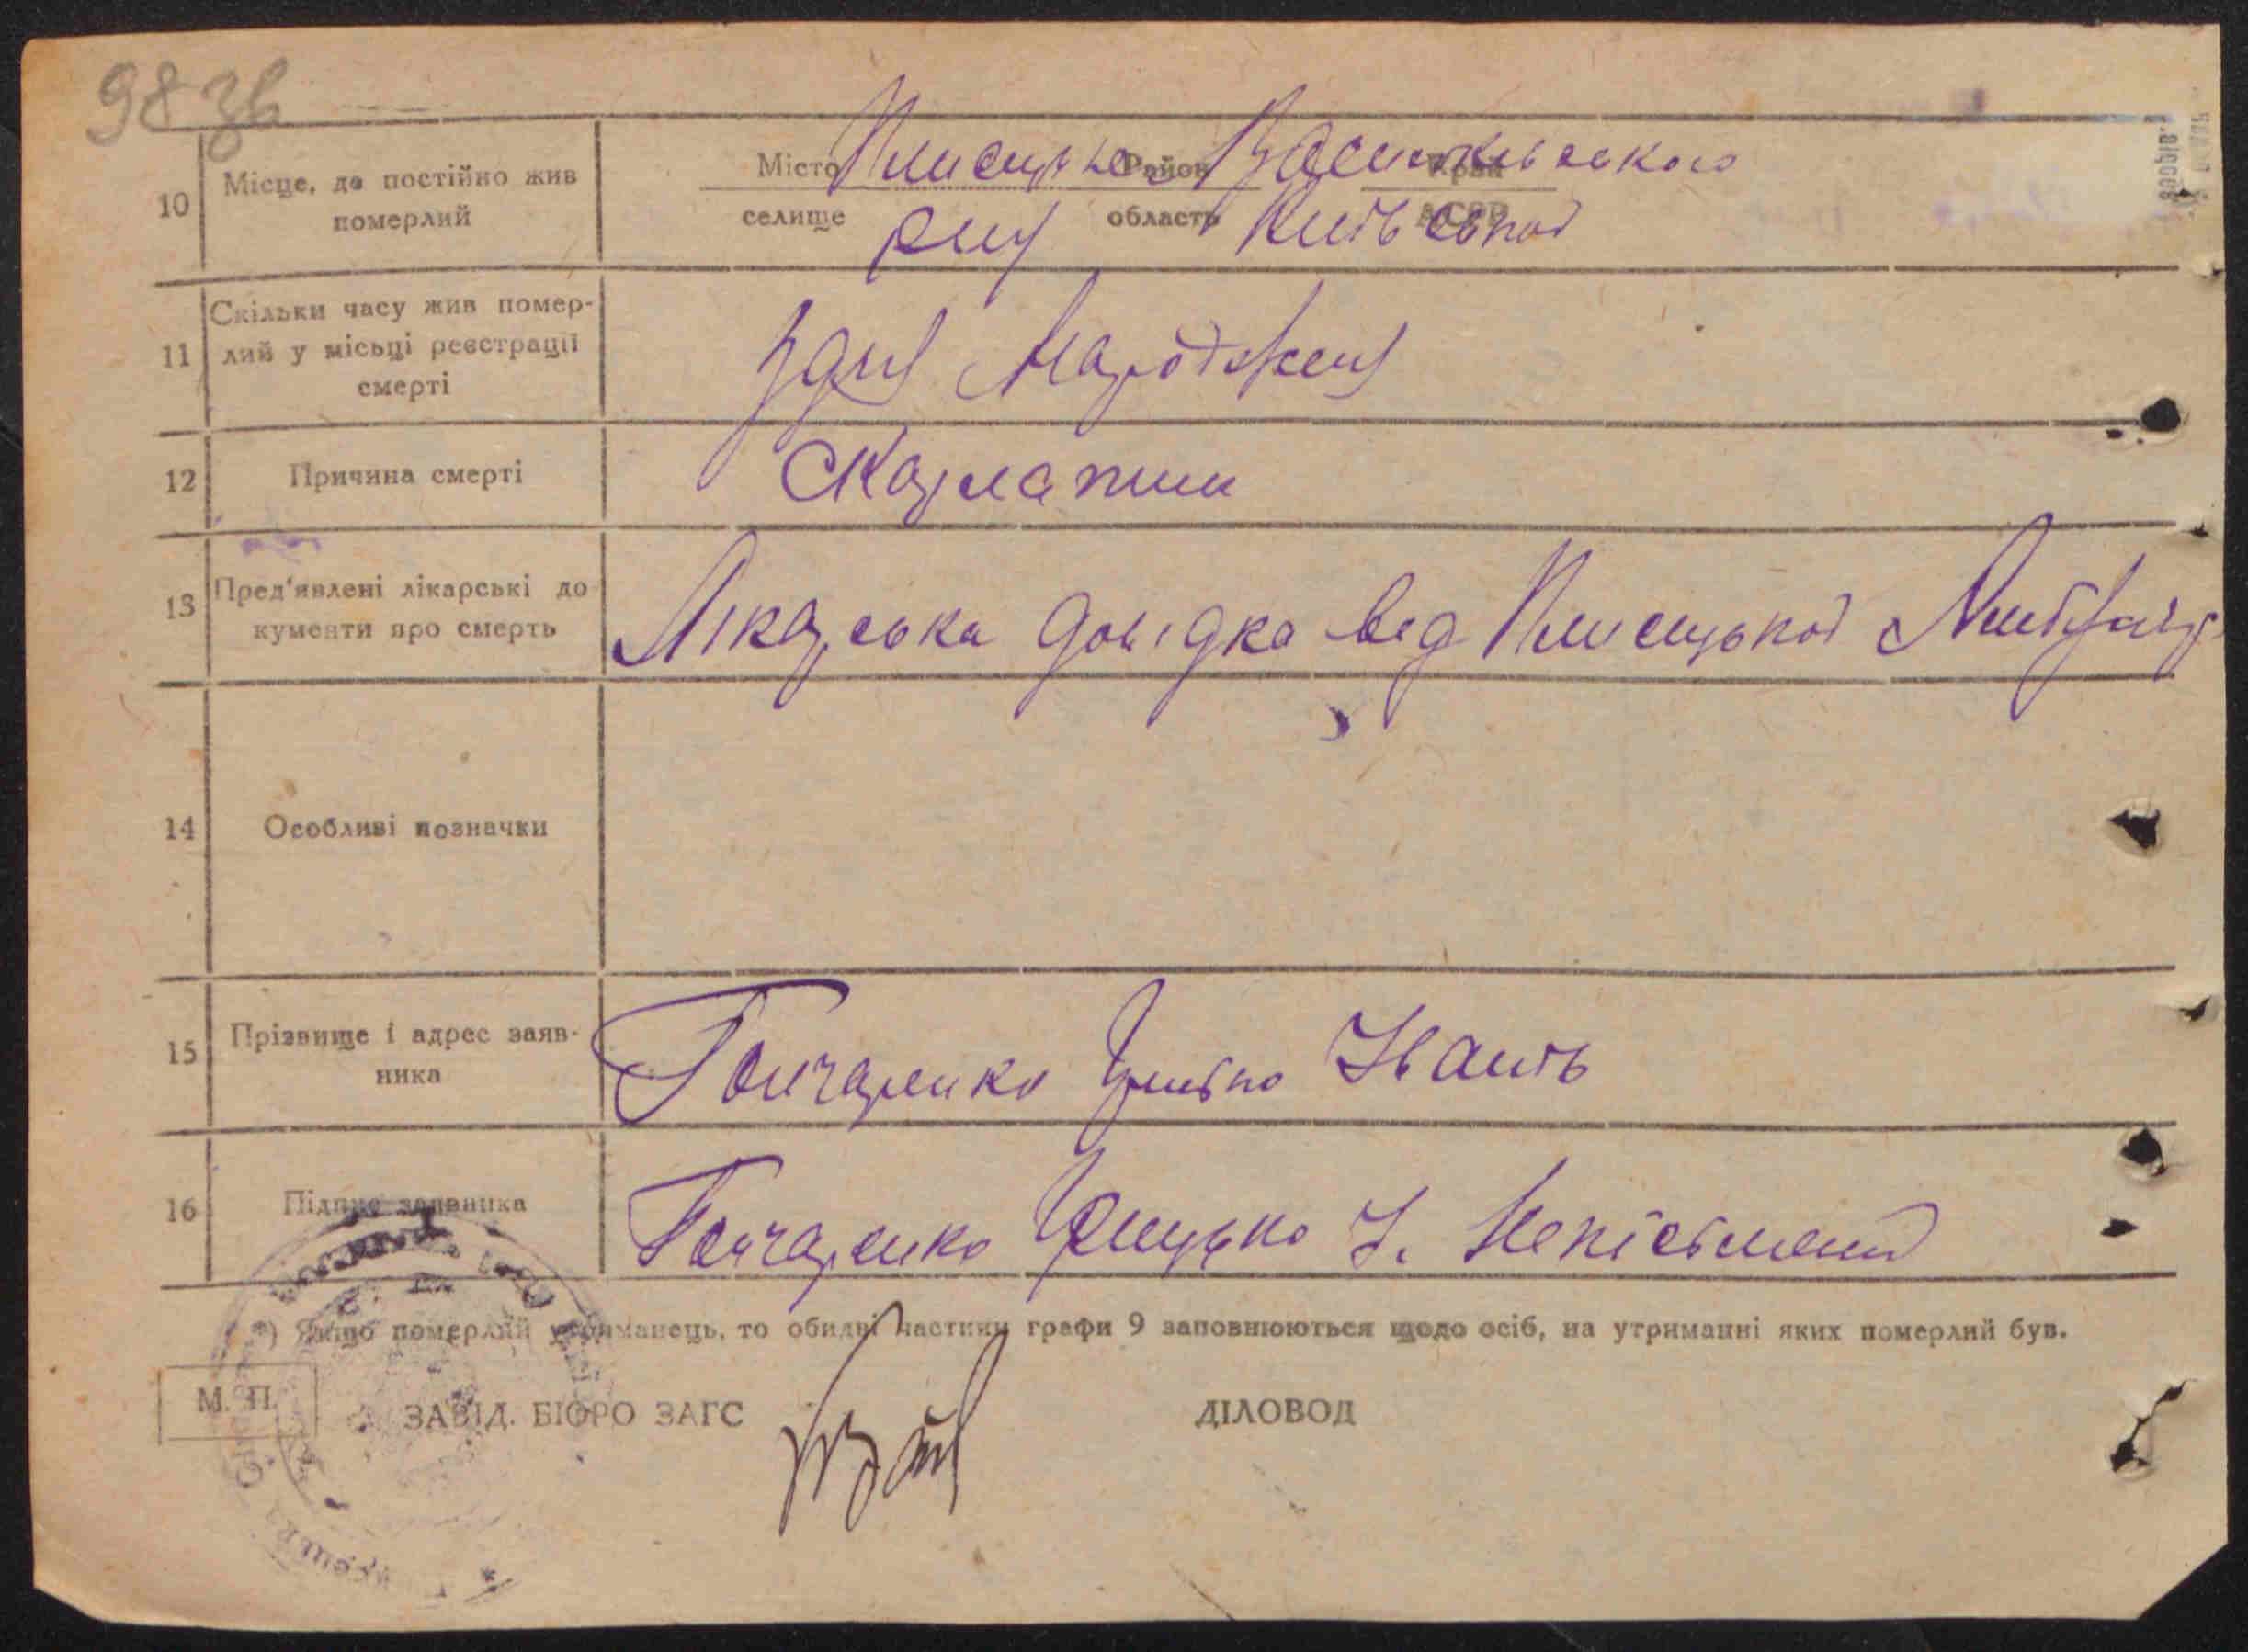 98 зв
10 Місце, де постійно жив померлий
Місто Район Край
селище область АСРР
Плисецьке Васильківського
р-ну Київської
11 Скільки часу жив помер-
лий у місьці реєстрації
смерті
з дня народжен
12 Причина смерті
Скарлатин
13 Пред'явлені лікарські до
кументи про смерть
Лікарська довідка від Плисецької
14 Особливі позначки
15 Прізвище і адрес заяв-
ника
Гончаренко Івань
16 Підпис заявника
Гончаренко І. Непісьмений
*) Якщо померлий утриманець, то обидві частини графи 9 заповнюються щодо осіб, на утриманні яких померлий був.
М. П.
ЗАВІД. БЮРО ЗАГС ДІЛОВОД